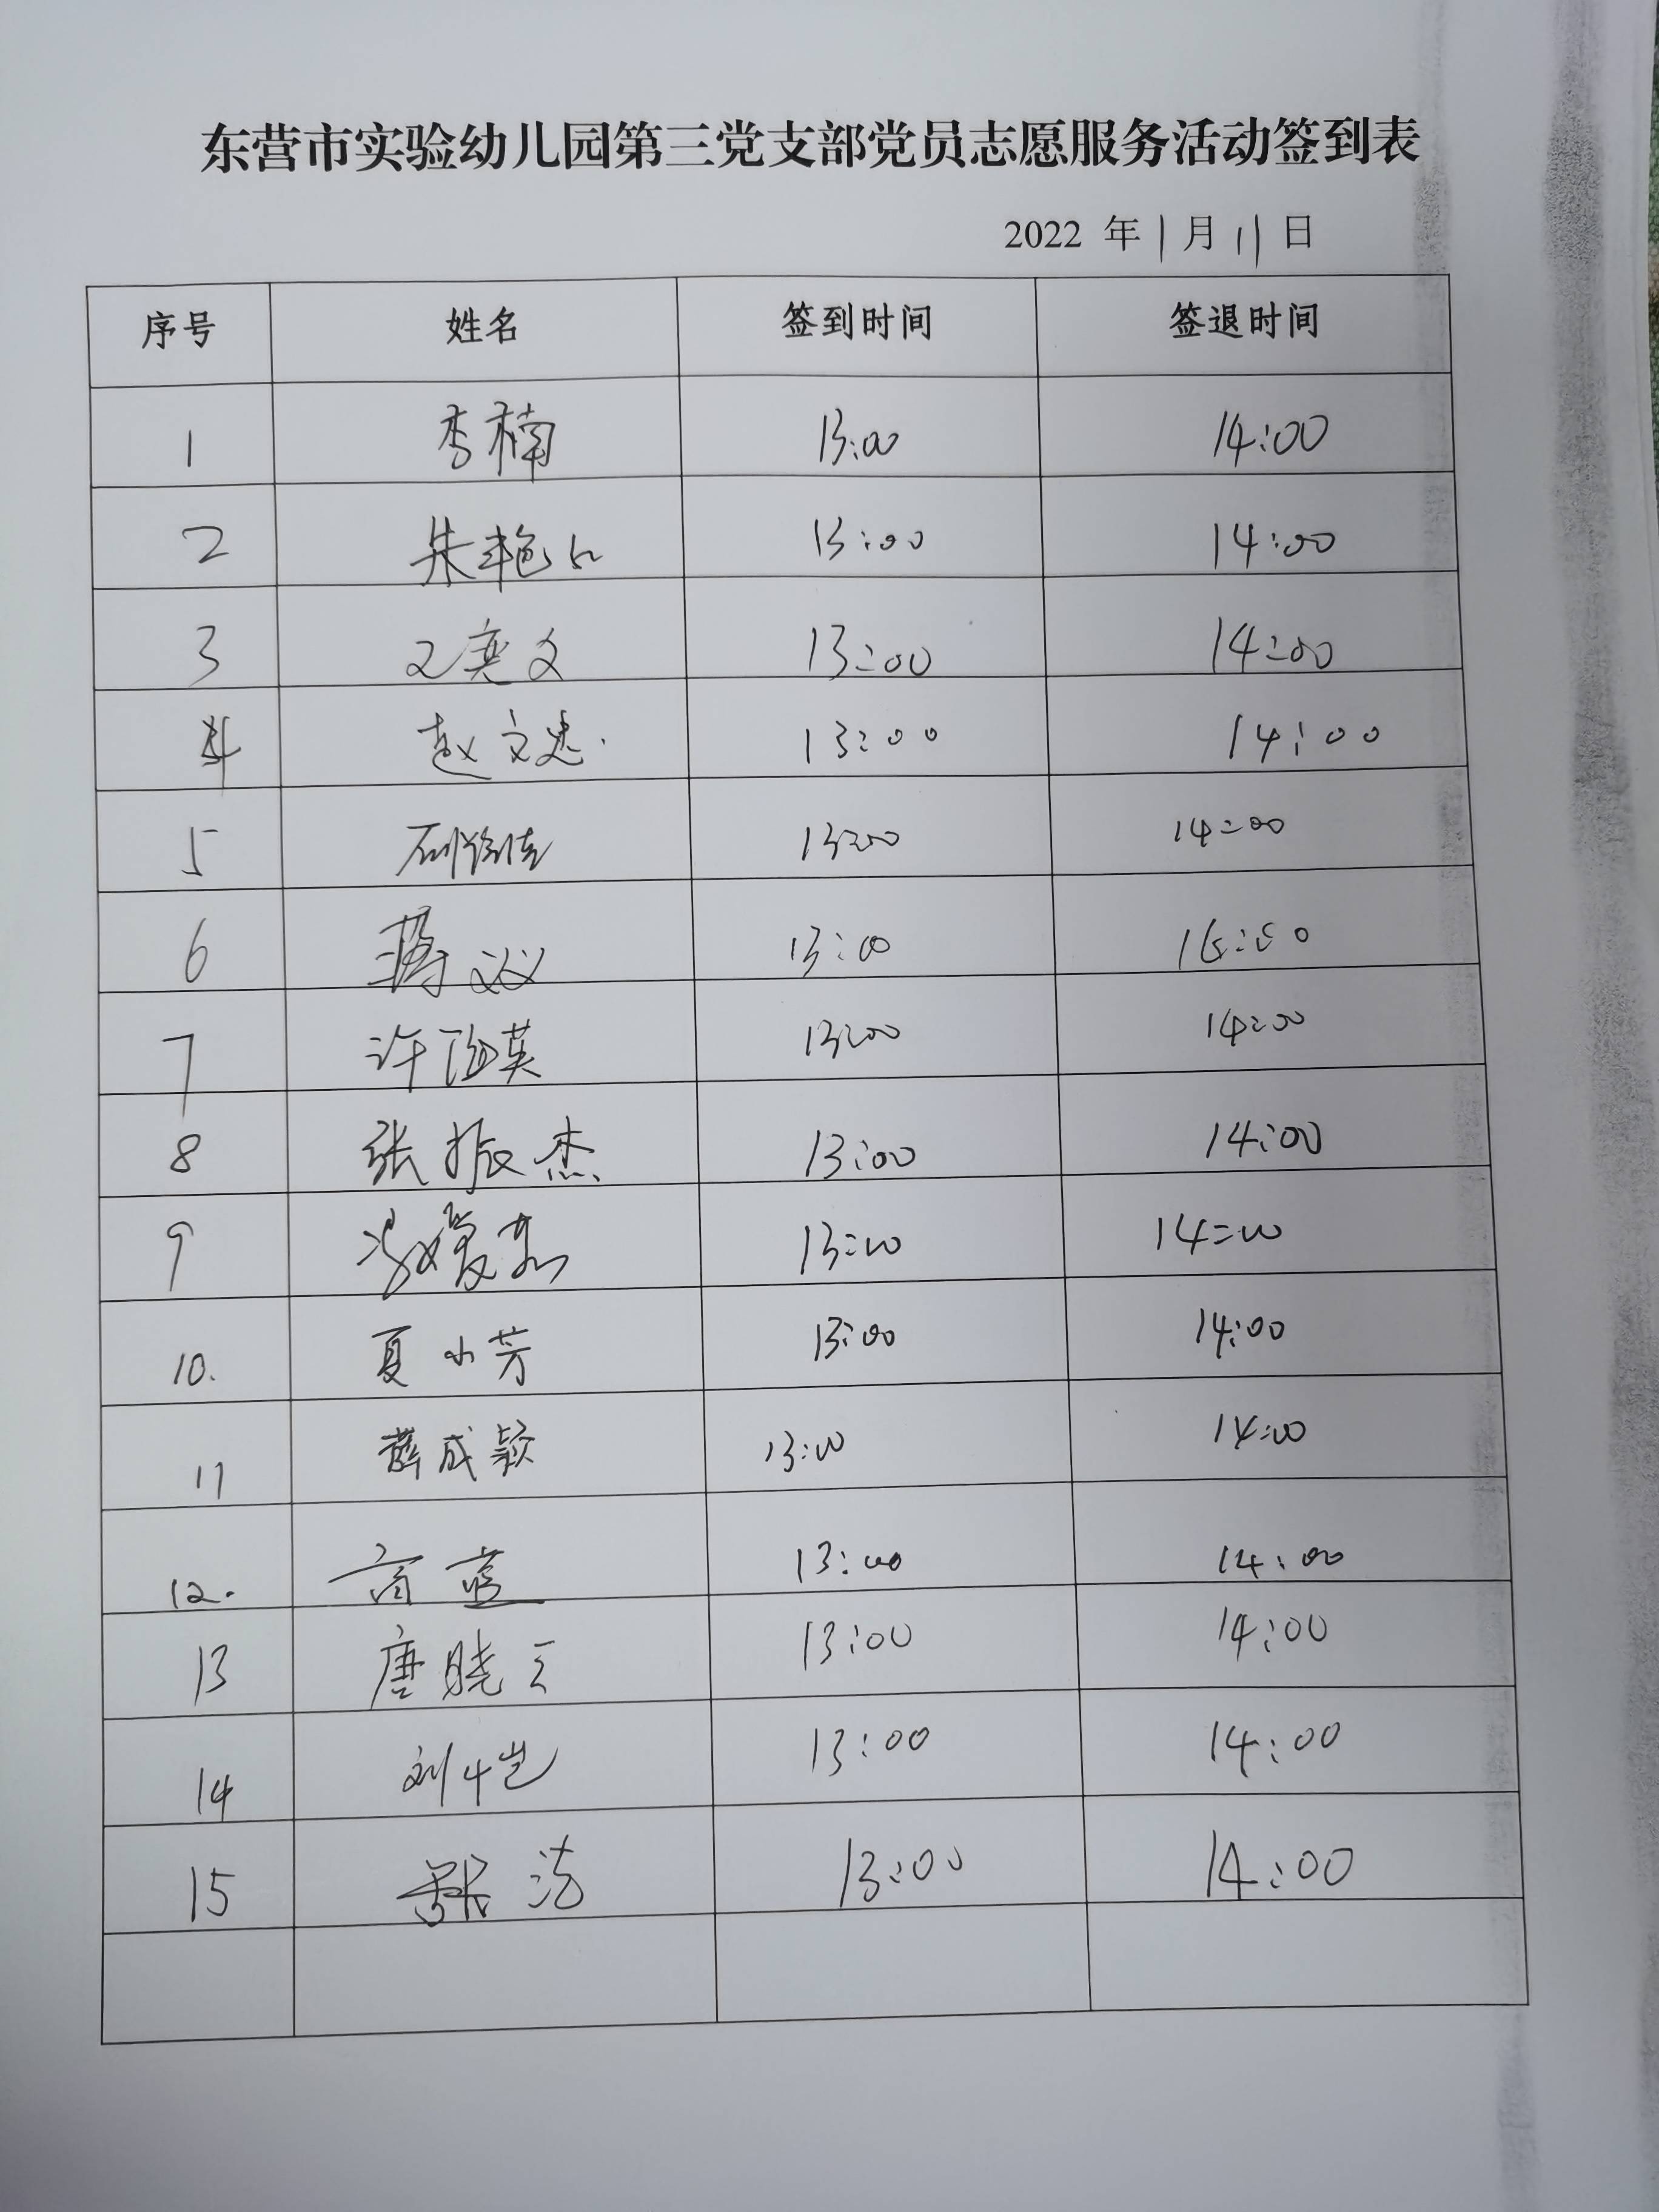 东营市实验幼儿园第三党支部党员志愿服务活动签到表
2022 年 1 月 11 日
序号 姓名 签到时间 签退时间
1 李楠 13:00 14:00
2 朱艳 13:00 14:00
3 文 13:00 14:00
4 赵文忠 13:00 14:00
5 13:00 14:00
6 13:00
7 许海英 13:00 14:00
8 张振杰 13:00 14:00
9 13:00 14:00
10. 夏小芳 13:00 14:00
11 薛成颖 13:00 14:00
12. 商蓝 13:00 14:00
13 唐晓云 13:00 14:00
14 刘恺 13:00 14:00
15 洁 13:00 14:00